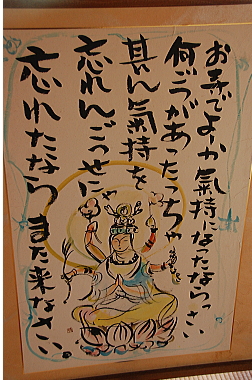 お寺でよか氣持になったならっさい
何ごつがあったっちゃ
其ん氣持を
忘れんごっせに
忘れたなら また来なさい。